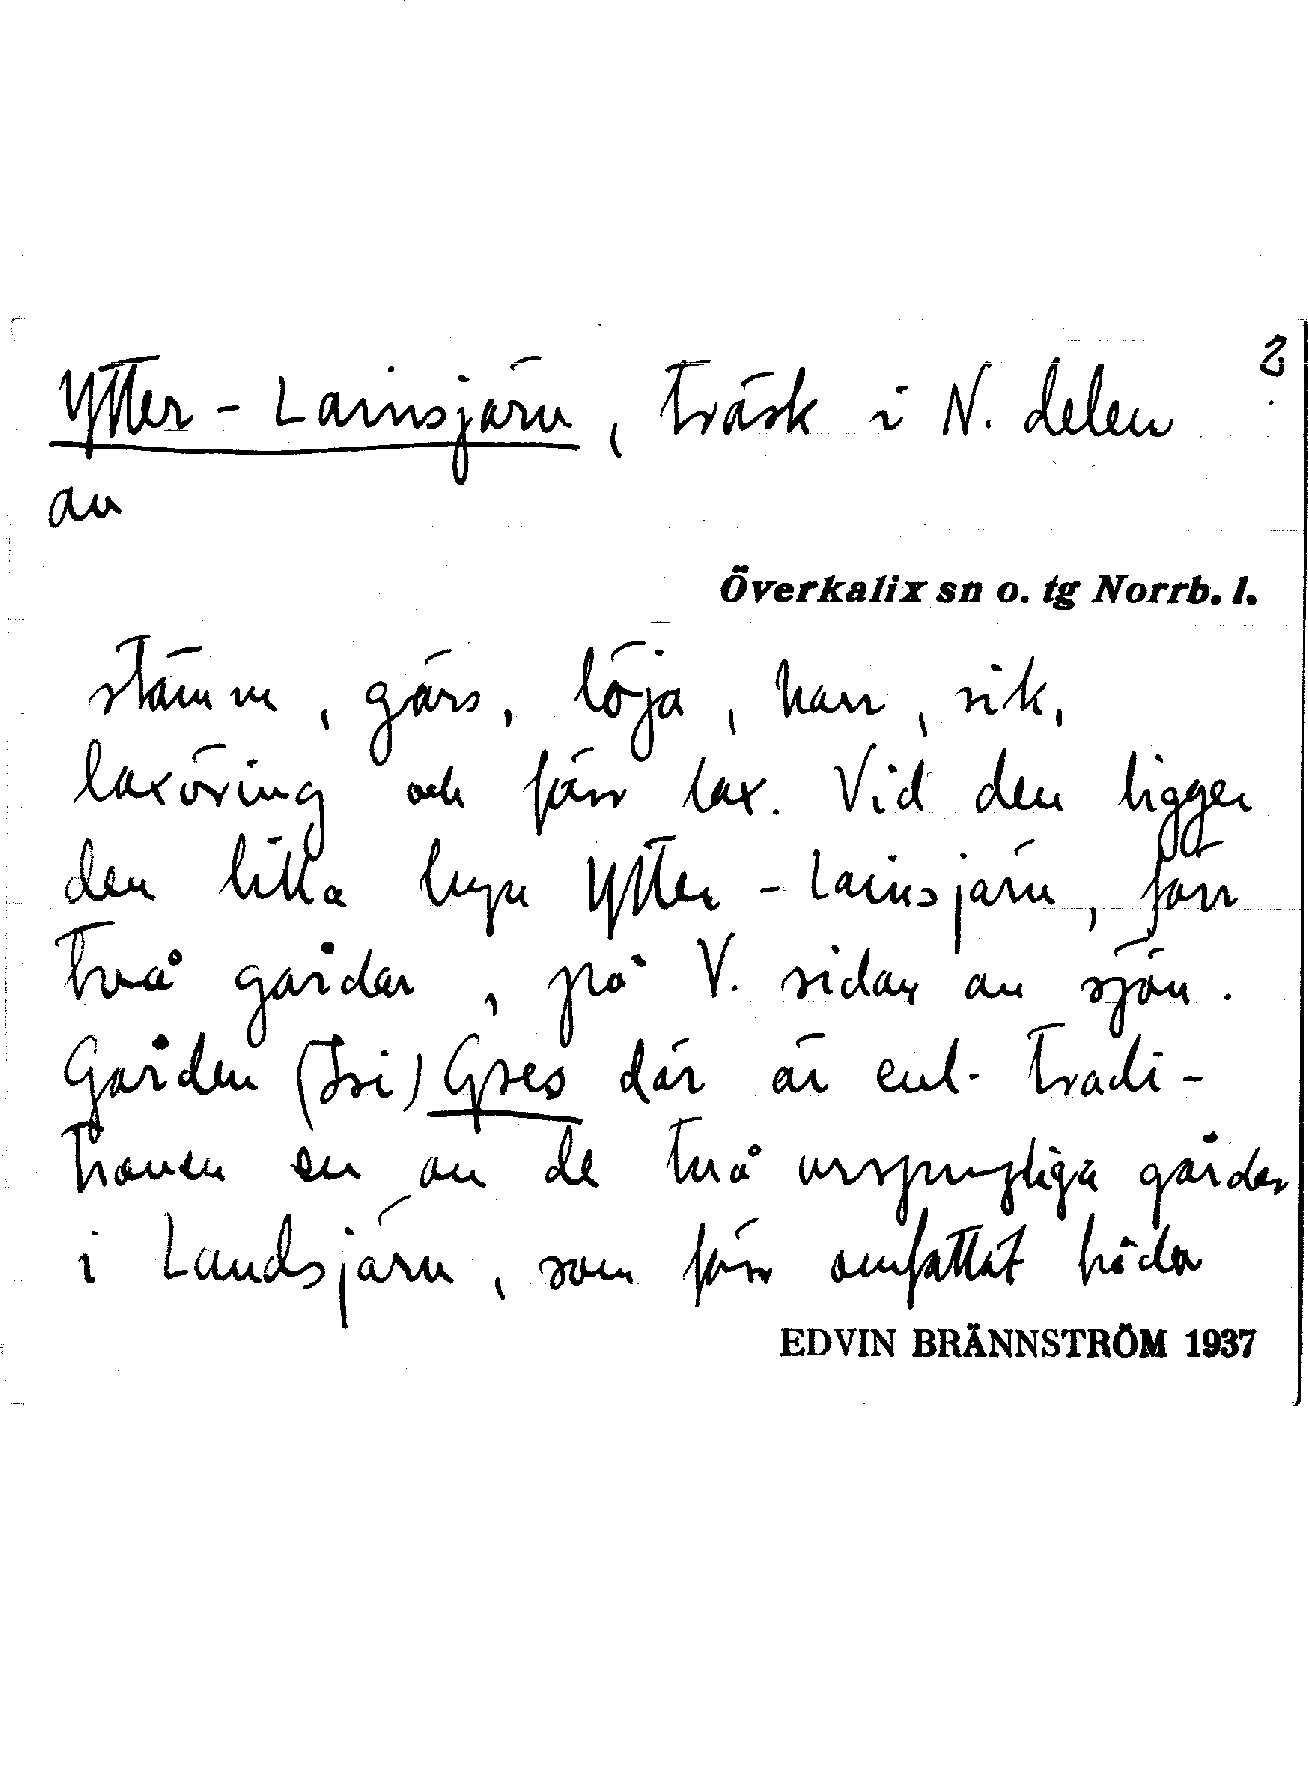 2
Ytter-Lainsjärv, träsk i N. delen
av
Överkalix sn o. tg Norrb. l.
stäm m, gärs, löja, harr, sik,
laxöring och förr lax. Vid den ligger
den lilla byn Ytter-Lainsjärv, förr
två gårdar, på V. sidan av sjön.
Gården (Isi) Gres där är enl. tradi-
tionen en av de två ursprungliga gårdar
i Landsjärv, som förr omfattat båda
EDVIN BRÄNNSTRÖM 1937